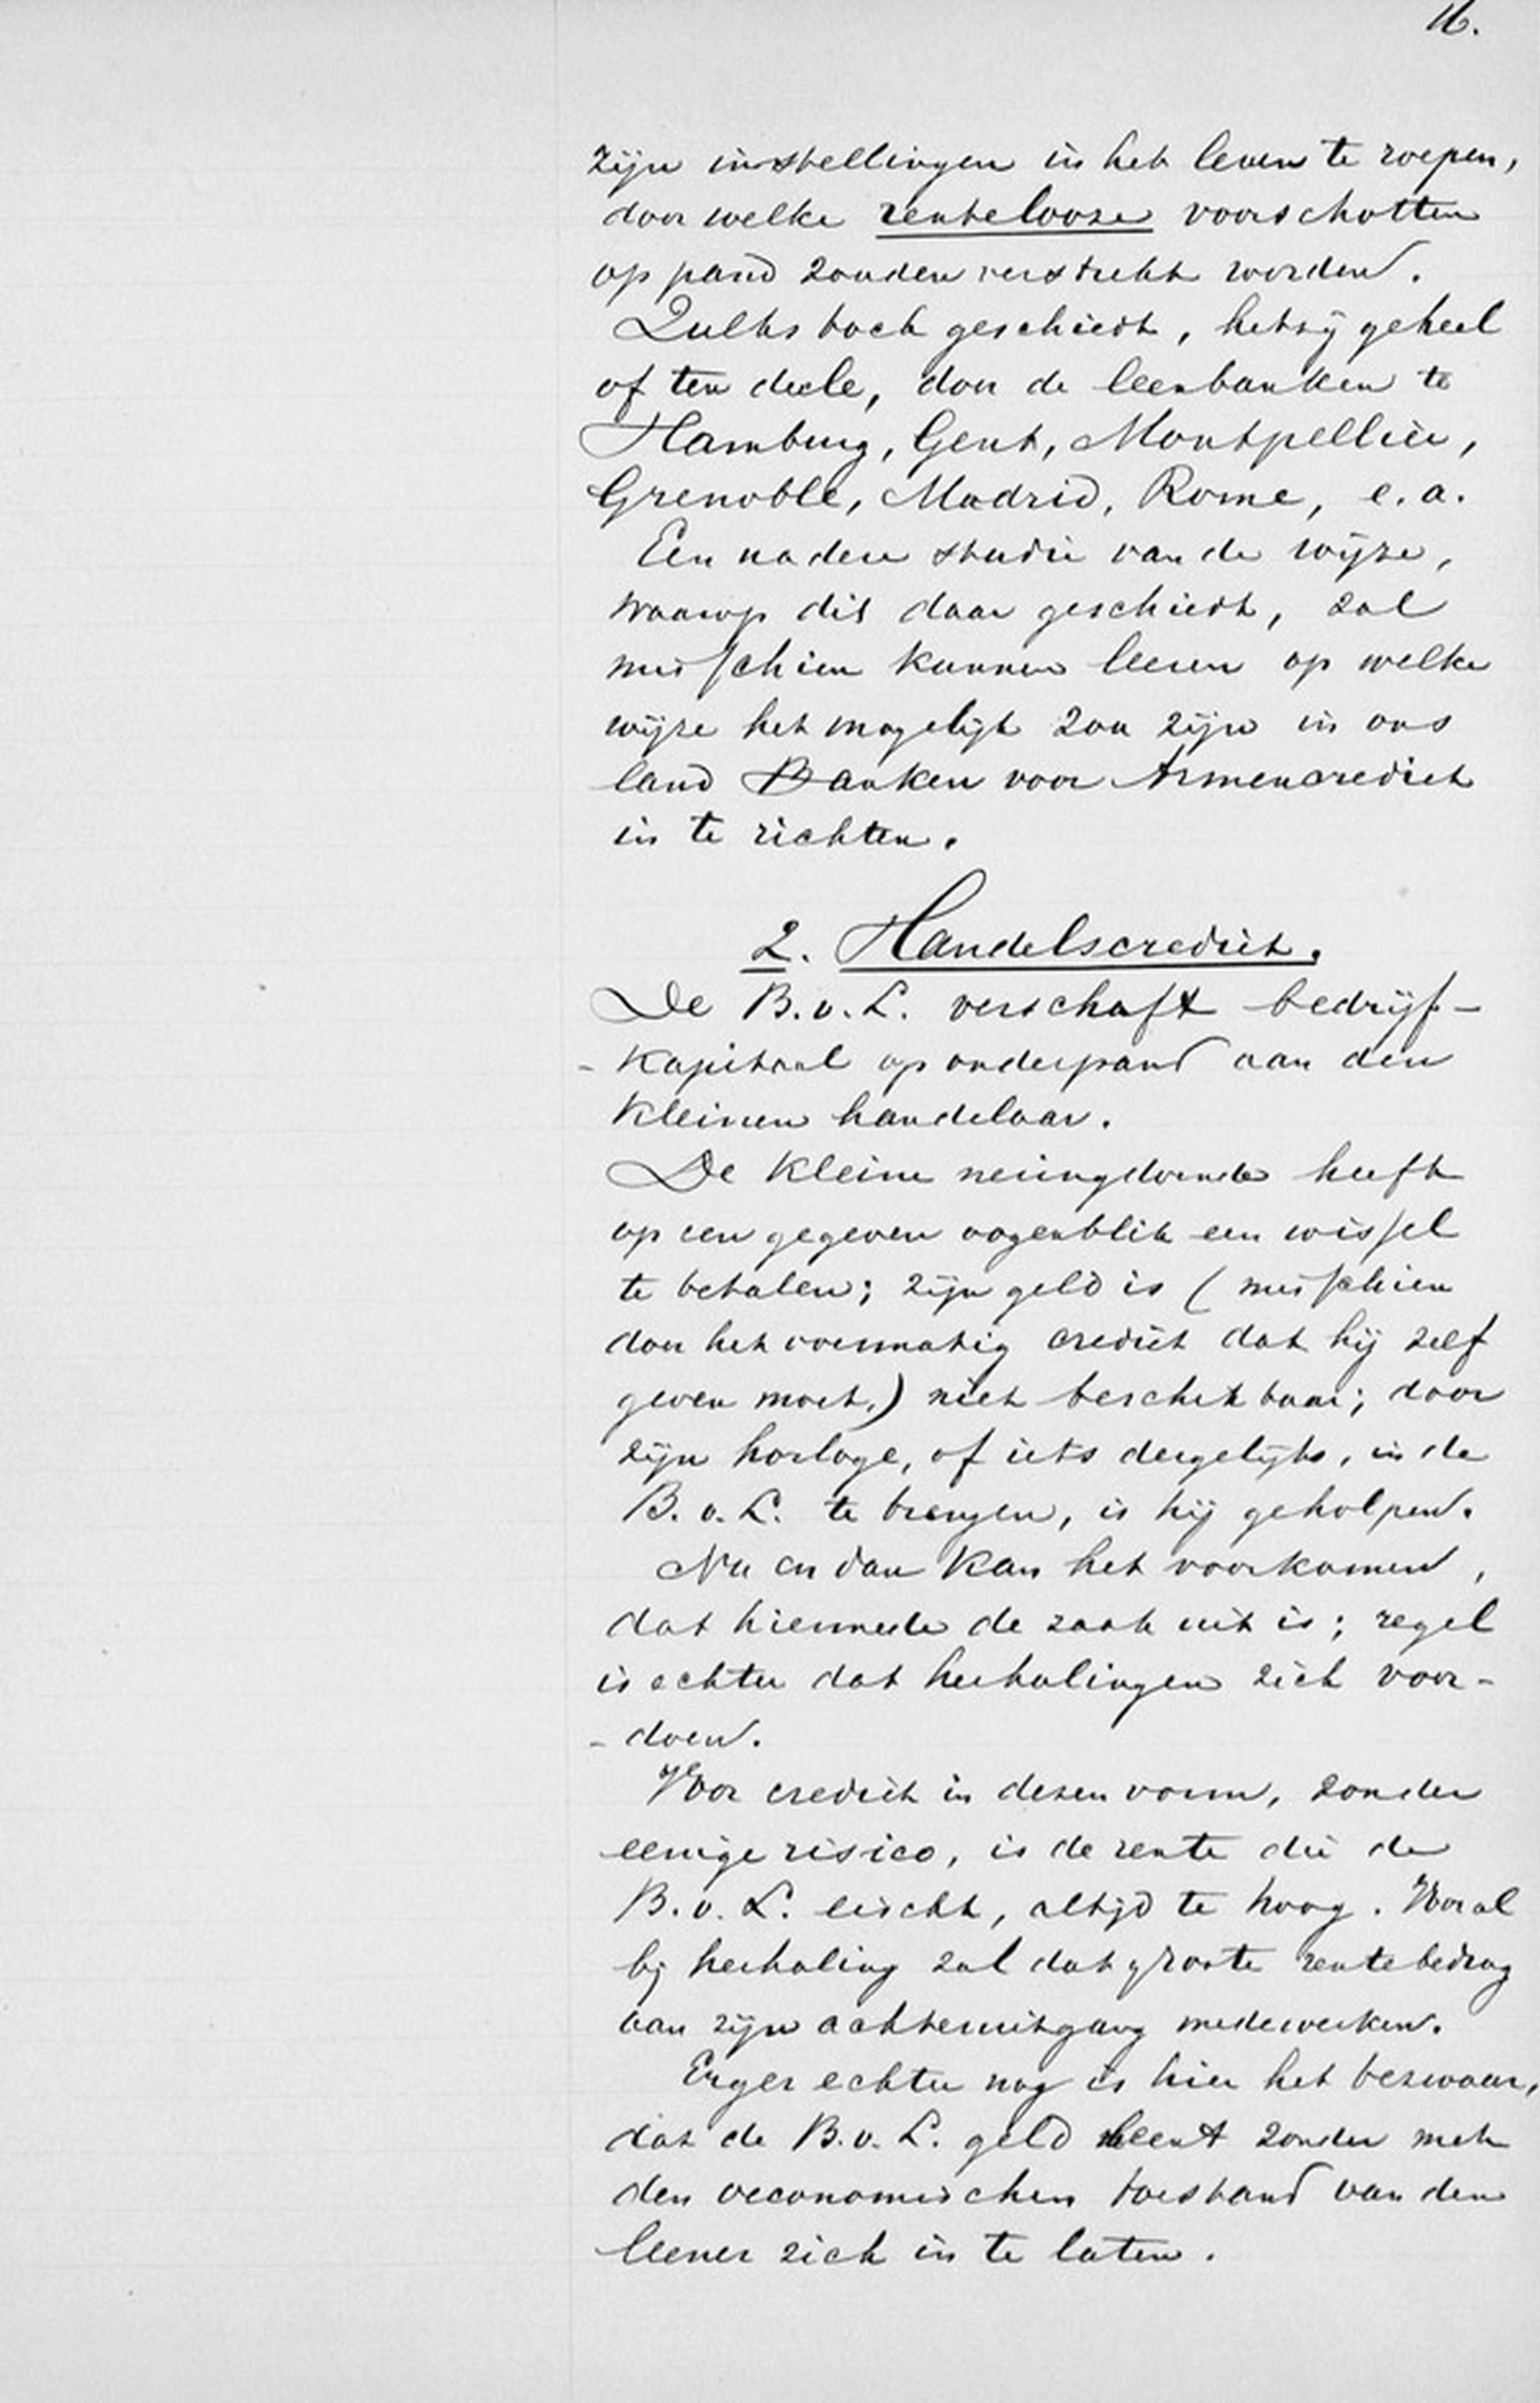 16.
zijn instellingen in het leven te roepen,
door welke rentelooze voorschotten
op pand zouden verstrekt worden.
Zulks toch geschiedt, hetzij geheel
of ten deele, door de leenbanken te
Hamburg, Gent, Montpellier,
Grenoble, Madrid, Rome, e.a.
Een nadere studie van de wijze,
waarop dit daar geschiedt, zal
misschien kunnen leeren op welke
wijze het mogelijk zou zijn in ons
land Banken voor Armencrediet
in te richten.
2. Handelscrediet.
De B.v.L. verschaft bedrijf-
- kapitaal op onderpand aan den
kleinen handelaar.
De kleine neringdoende heeft
op een gegeven oogenblik een wissel
te betalen; zijn geld is (misschien
door het overmatig crediet dat hij zelf
geven moet,) niet beschikbaar; door
zijn horloge, of iets dergelijks, in de
B.v.L. te brengen, is hij geholpen.
Nu en dan kan het voorkomen,
dat hiermede de zaak uit is; regel
is echter dat herhalingen zich voor-
- doen.
Voor crediet in dezen vorm, zonder
eenige risico, is de rente die de
B.v.L. eischt, altijd te hoog. Vooral
bij herhaling zal dat groote rentebedrag
aan zijn achteruitgang medewerken.
Erger echter nog is hier het bezwaar,
dat de B.v.L. geld leent zonder met
den oeconomischen toestand van den
leener zich in te laten.